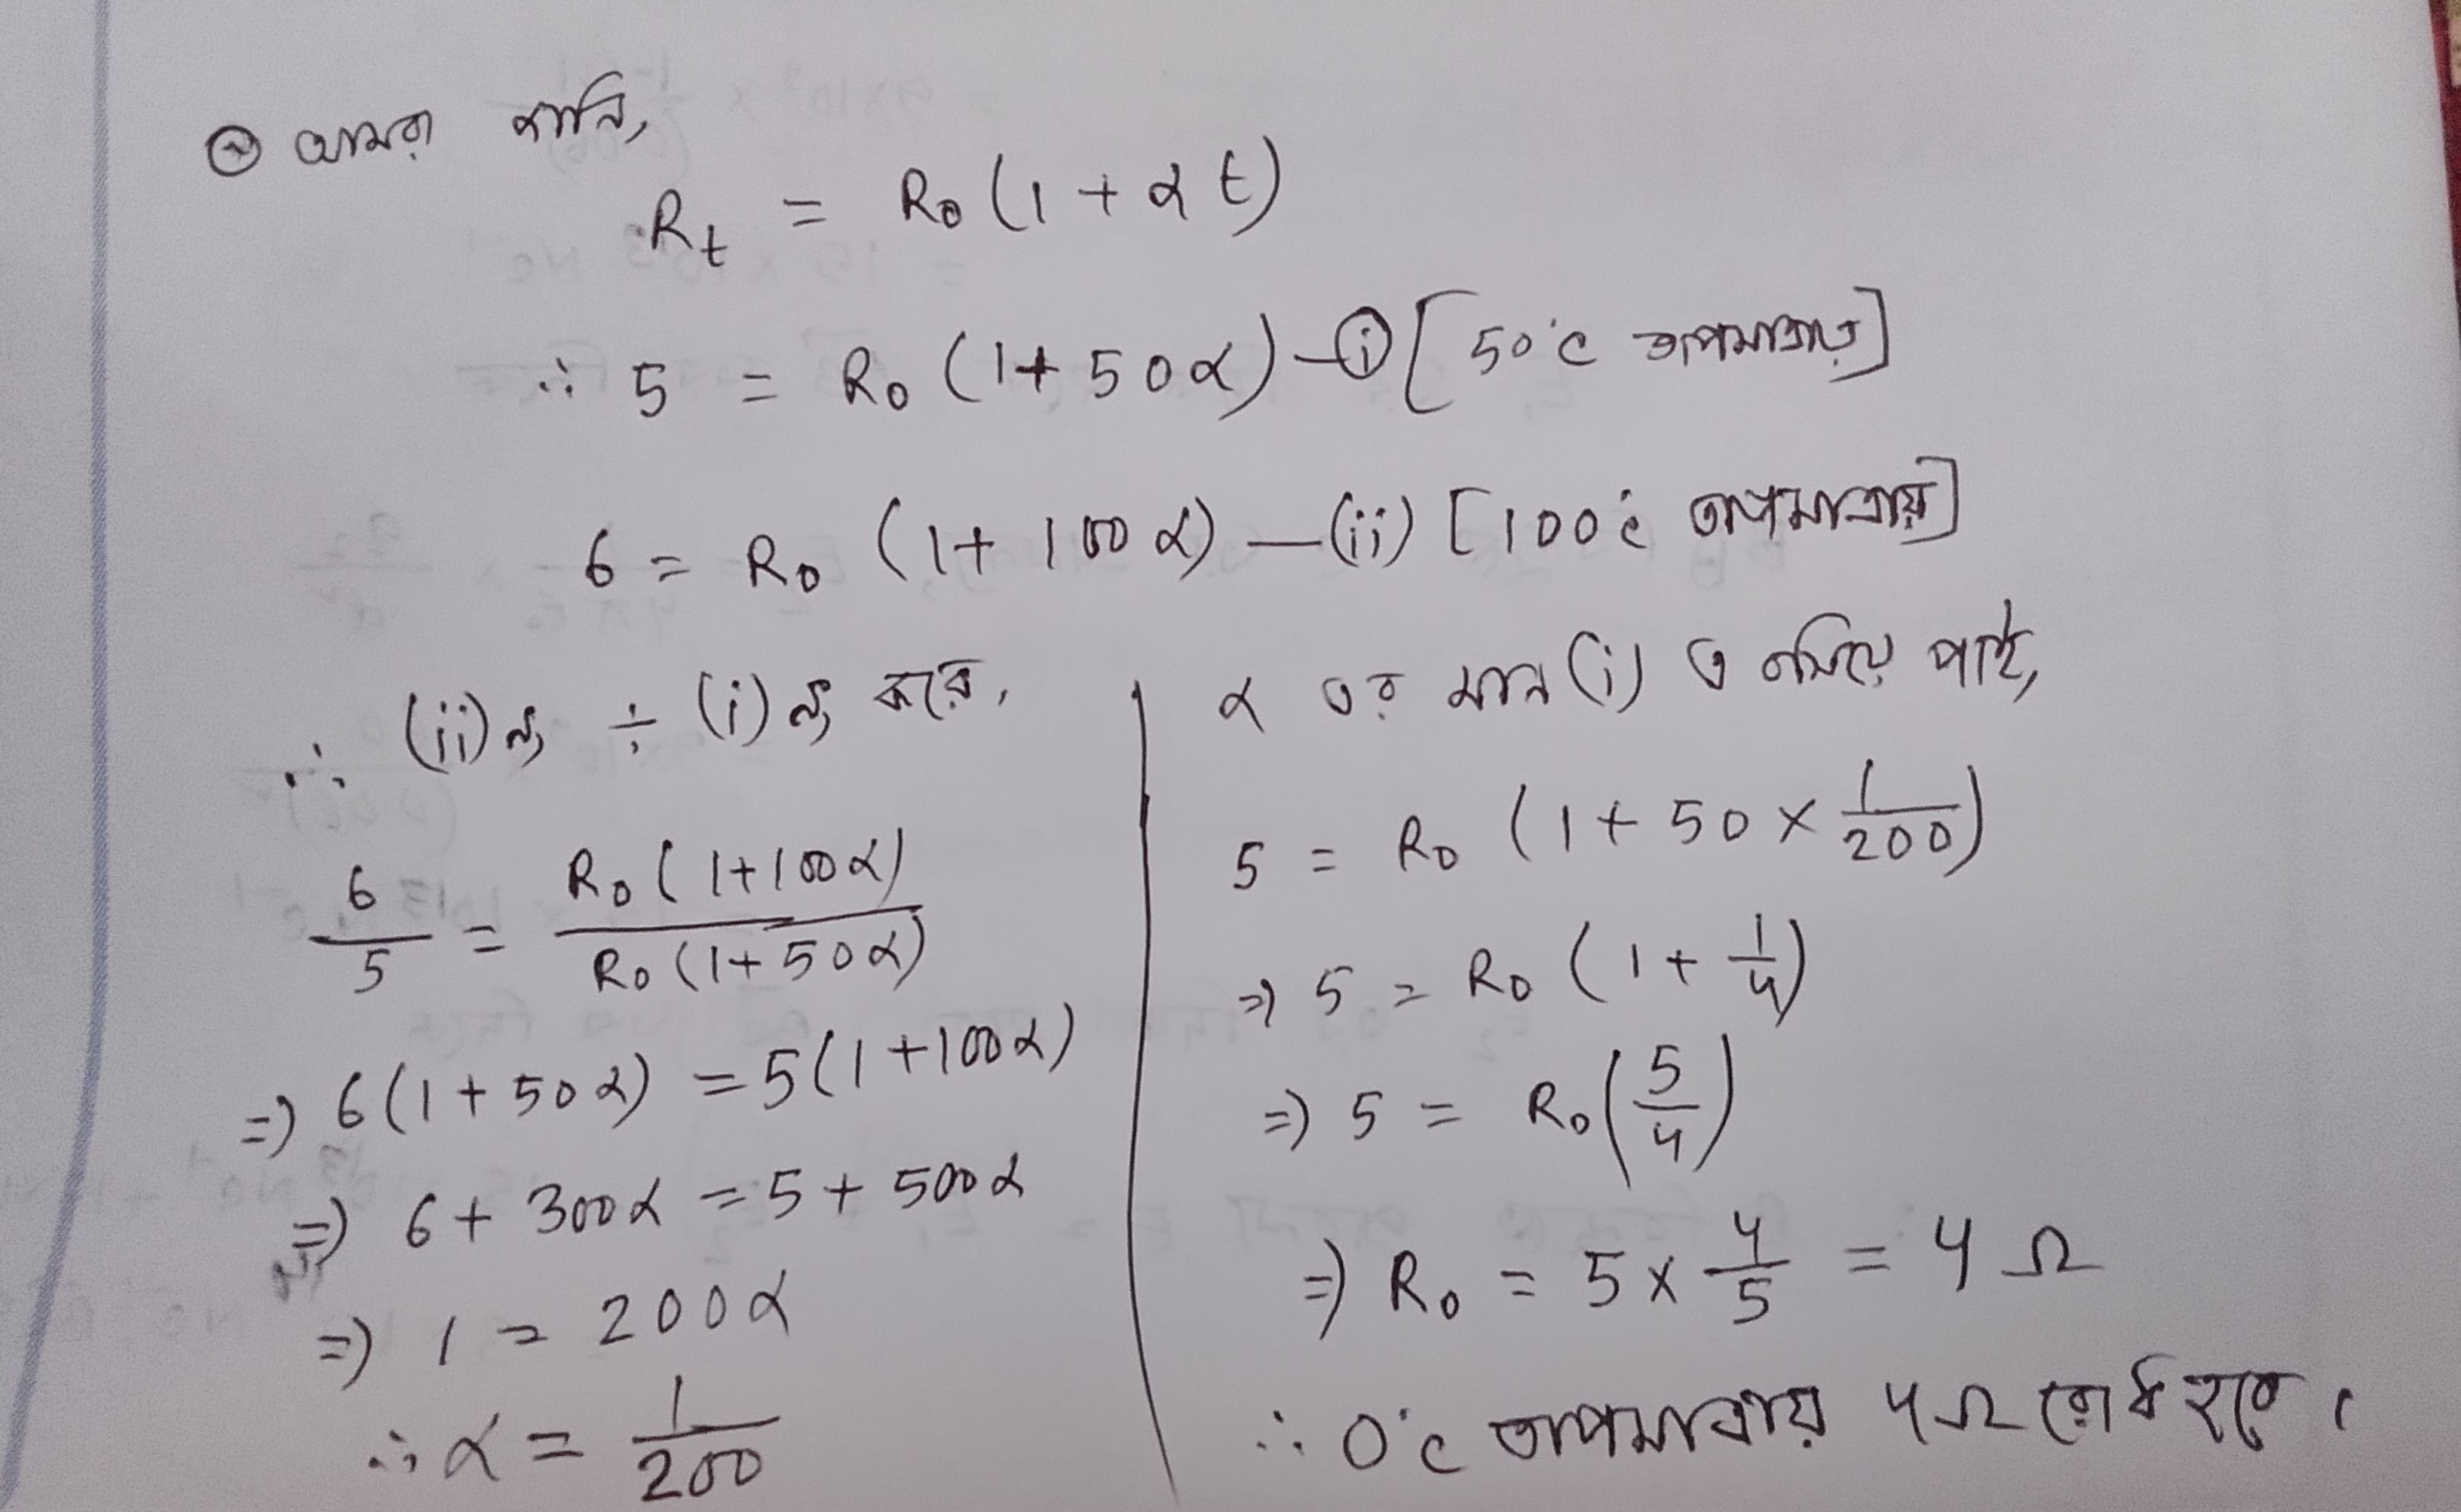 আমরা জানি,
Rₜ = R₀ (1 + αt)
∴ 5 = R₀ (1 + 50α) — (i) [50°c তাপমাত্রায়]
6 = R₀ (1 + 100α) — (ii) [100°c তাপমাত্রায়]
∴ (ii) নং ÷ (i) নং করে,
6/5 = R₀(1+100α)/R₀(1+50α)
⇒ 6(1+50α) = 5(1+100α)
⇒ 6 + 300α = 5 + 500α
⇒ 1 = 200α
∴ α = 1/200
α এর মান (i) এ বসিয়ে পাই,
5 = R₀ (1 + 50 × 1/200)
⇒ 5 = R₀ (1 + 1/4)
⇒ 5 = R₀ (5/4)
⇒ R₀ = 5 × 4/5 = 4 Ω
∴ 0°c তাপমাত্রায় 4Ω রোধ হবে।